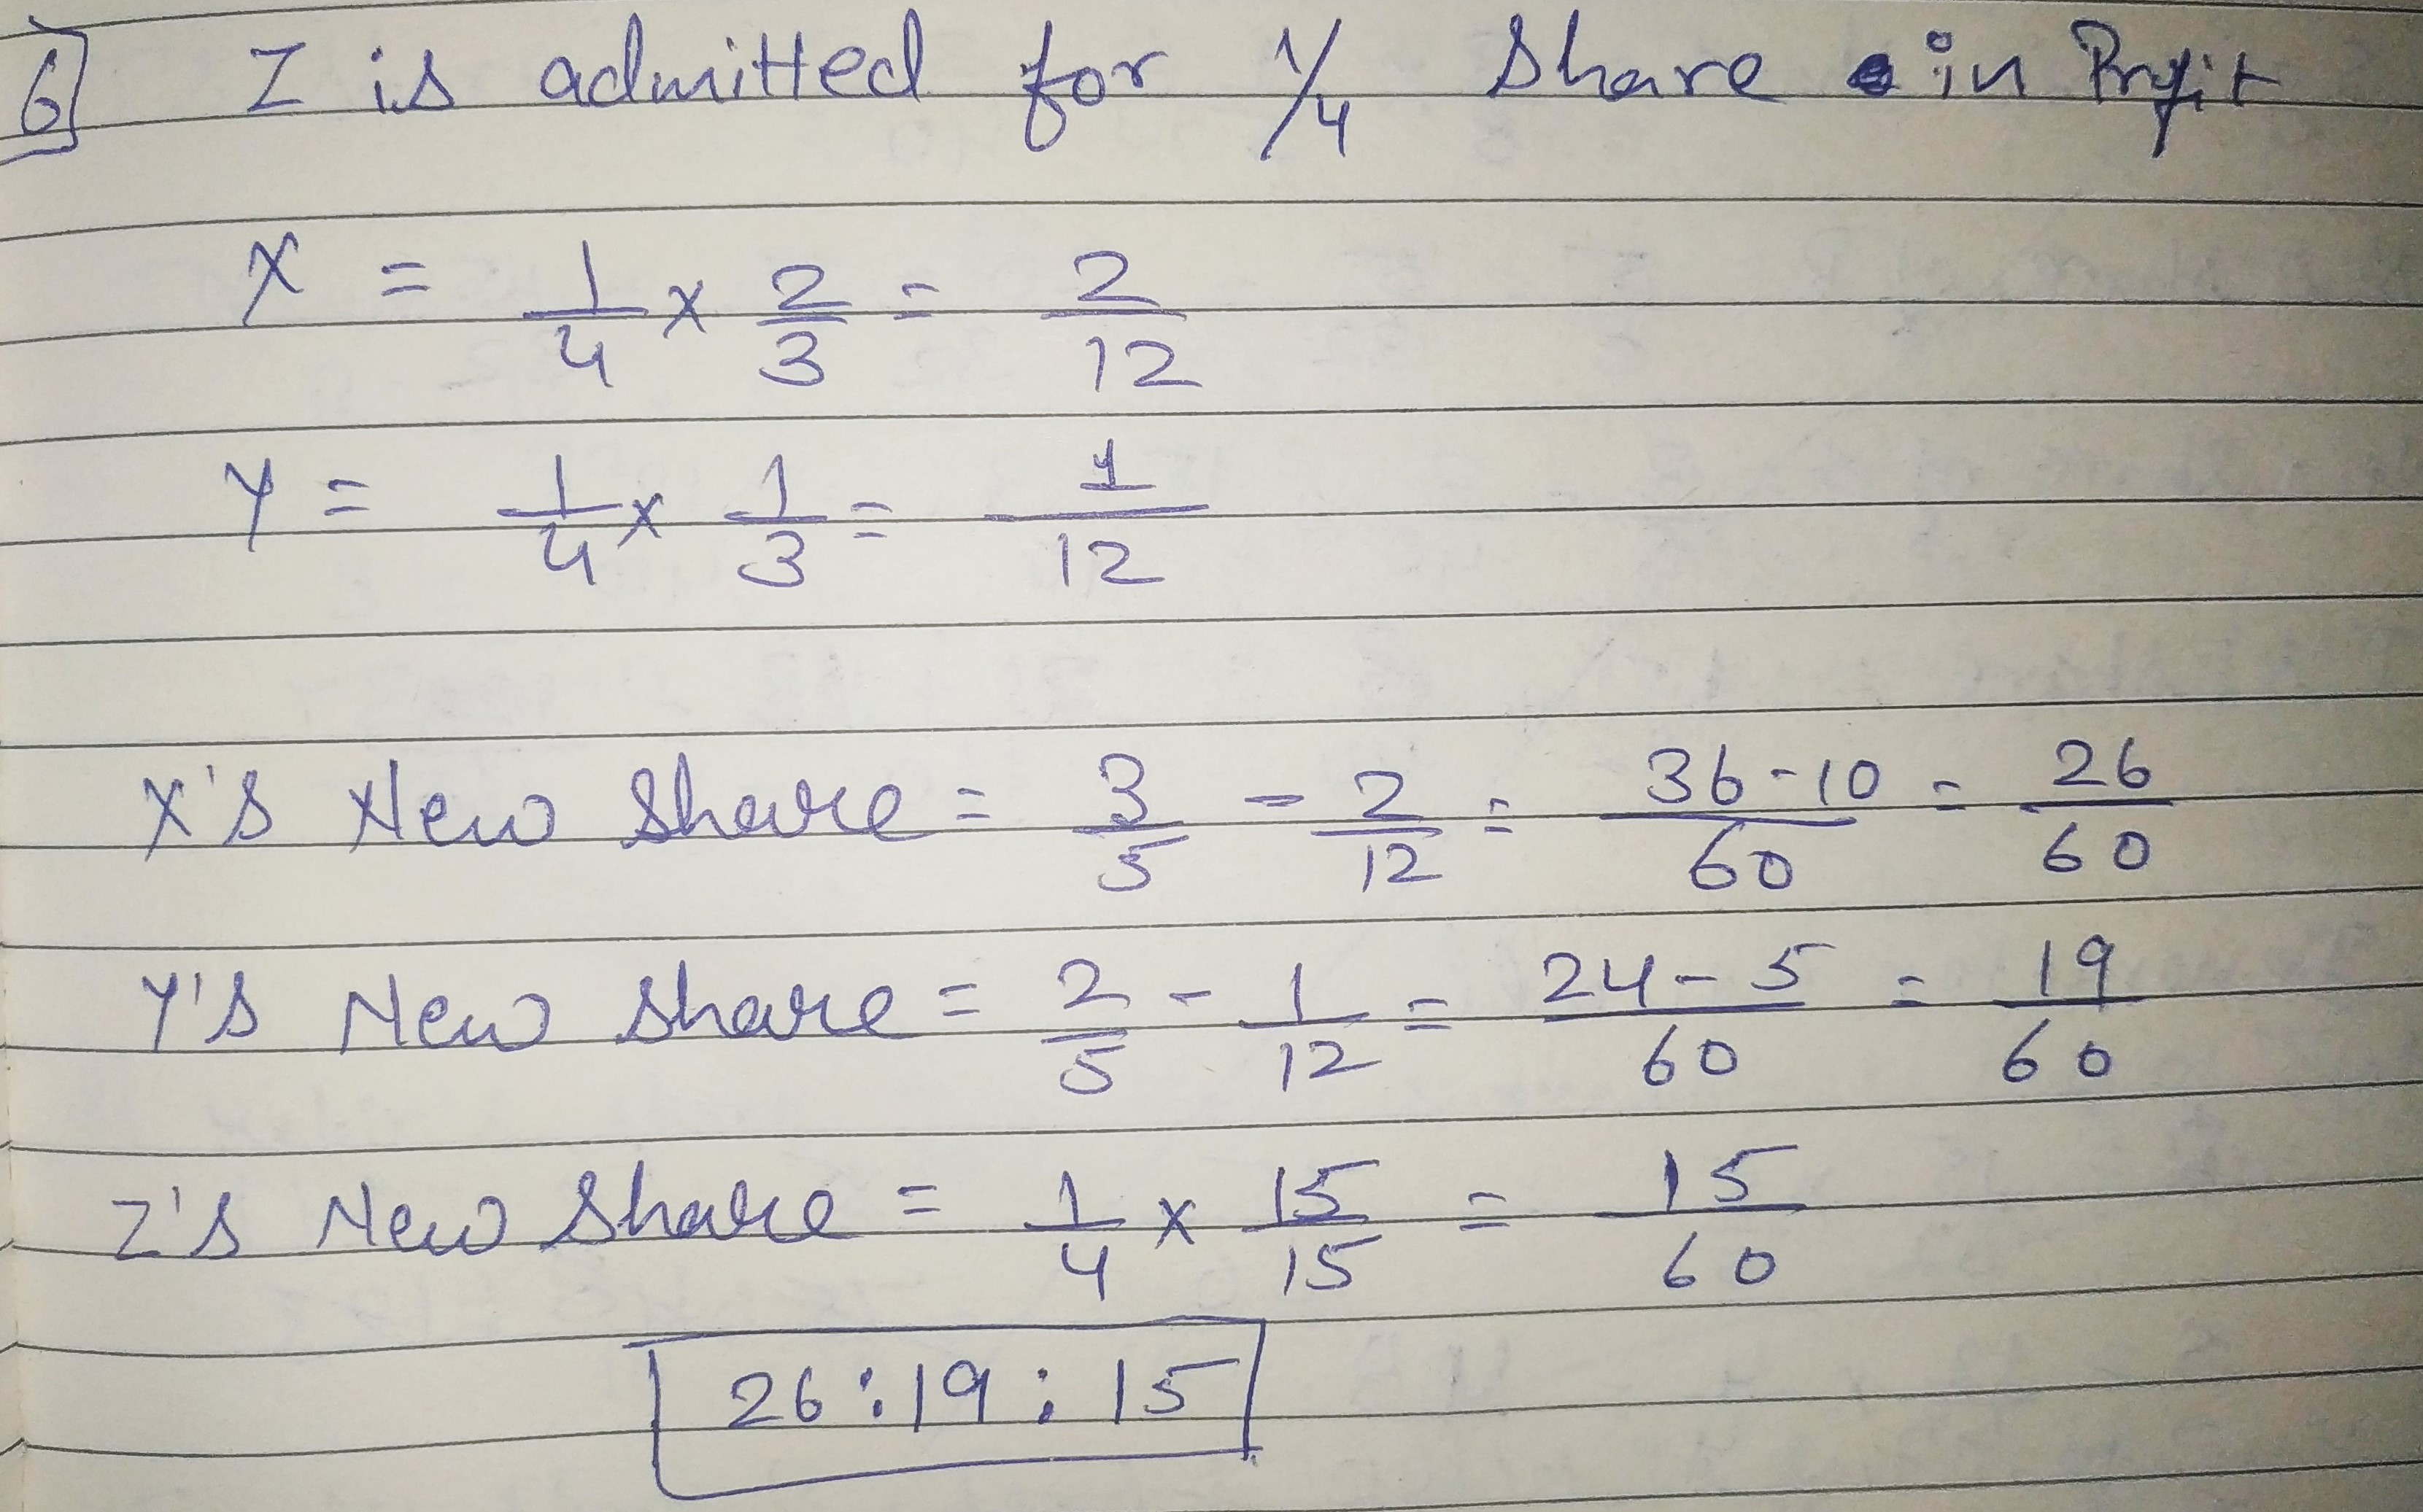 6] Z is admitted for 1/4 share in Profit
X = 1/4 × 2/3 = 2/12
Y = 1/4 × 1/3 = 1/12
X's New Share = 3/5 - 2/12 = 36-10/60 = 26/60
Y's New share = 2/5 - 1/12 = 24-5/60 = 19/60
Z's New Share = 1/4 × 15/15 = 15/60
26:19:15